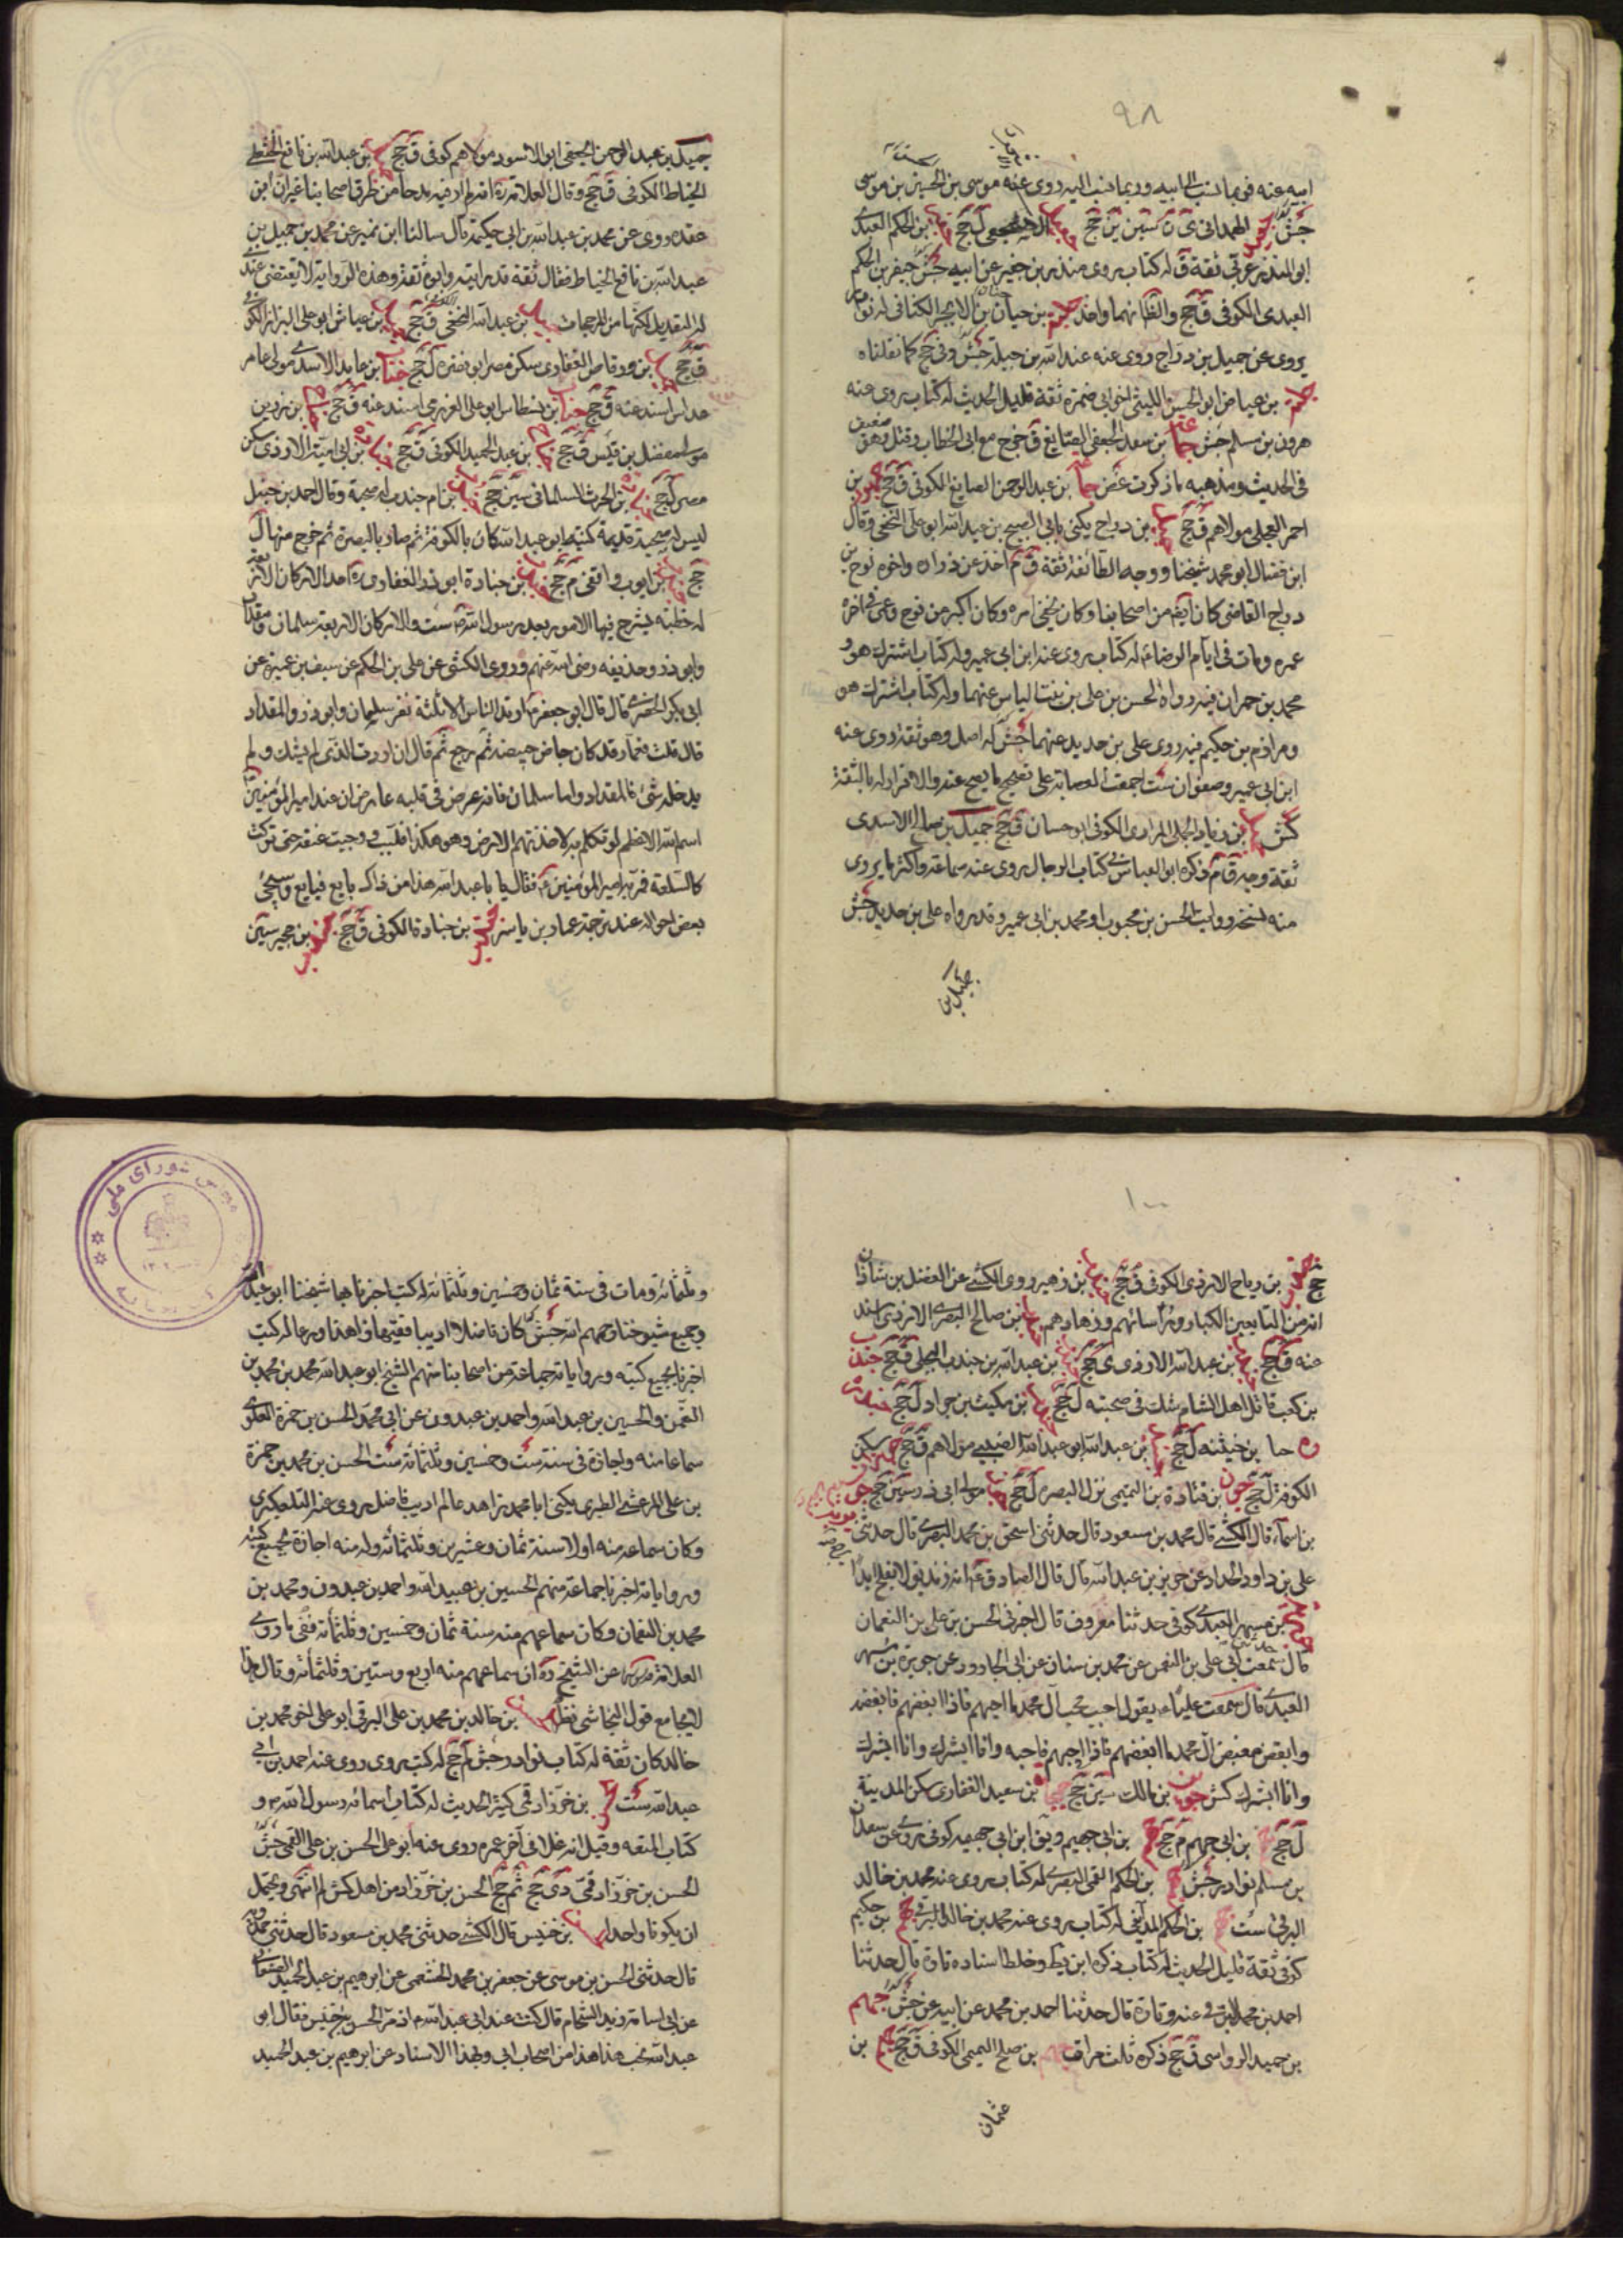 ٩٨
ابيه عنه فربما نسب الى ابيه وربما نسب اليه روى عنه موسى بن الحسين بن موسى
جش الهمدانى ى ن سين ين جخ الاشجعى ل جخ بن الحكم العبدى
ابو المنذر عربى ثقة ق له كتاب يروى منذر بن جفير عن ابيه جش جيفر بن الحكم
العبدى الكوفى ق جخ والظ انهما واحد بن حيان بن الابجر الكنانى له نوادر
يروى عن جميل بن دراج روى عنه عبد الله بن جبلة جش وفى جخ كما نقلناه
بن عياض ابو الحسن الليثى اخو ابى ضمرة ثقة قليل الحديث له كتاب يروى عنه
هرون بن مسلم جش بن سعد الجعفى الصايغ ق خرج مع ابى الخطاب وقتل وهو ضعيف
فى الحديث ومذهبه ما ذكرت غض بن عبد الرحمن الصايغ الكوفى ق جخ بن
احمر العجلى مولاهم ق جخ بن دراج يكنى بابى الصبيح بن عبد الله ابو على النخعى وقال
ابن فضال ابو محمد شيخنا ووجه الطائفة ثقة ق م اخذ عن زرارة واخوه نوح بن
دراج القاضى كان ايضا من اصحابنا وكان يخفى امره وكان اكبر من نوح وعمى فى اخر
عمره ومات فى ايام الرضا ع له كتاب يروى عنه ابن ابى عمير وله كتاب اشترك هو و
محمد بن حمران فيه رواه الحسن بن على بن بنت الياس عنهما وله كتاب اشترك هو
ومرازم بن حكيم فيه روى على بن حديد عنهما جش له اصل وهو ثقة روى عنه
ابن ابى عمير وصفوان ست اجمعت العصابة على تصحيح ما يصح عنه والاقرار له بالثقة
كش بن زياد الجملى المرادى الكوفى ابو حسان ق جخ جميل بن صالح الاسدى
ثقة وجه ق م ذكره ابو العباس فى كتاب الرجال يروى عنه سماعة واكثر ما يروى
منه نسخه رواية الحسن بن محبوب او محمد بن ابى عمير وقد رواه على بن حديد جش
جميل بن
جميل بن عبد الرحمن الجعفى ابو الاسود مولاهم كوفى ق جخ بن عبد الله بن نافع الخثعمى
الخياط الكوفى ق جخ وقال العلامة ره انه لم ار فيه مدحا من طرق اصحابنا غير ان ابن
عقده روى عن محمد بن عبد الله بن ابى حكيمة قال سالنا ابن نمير عن محمد بن جميل بن
عبد الله بن نافع الخياط فقال ثقة قد رايته وابوه ثقة وهذه الرواية لا تقتضى عندى
التعديل لكنها من المرجحات بن عبد الله النخعى ق جخ بن عياش ابو على البزاز الكوفى
ق جخ بن وقاص الغفارى سكن مصر ابو بصره ل جخ جناب بن عايد الاسدى مولى عامر
عداس اسند عنه ق جخ بن نسطاس ابو على العزرمى اسند عنه ق جخ بن يزيد بن
مولى مفضل بن قيس ق جخ بن عبد الحميد الكوفى ق جخ بن ابى امية الازدى سكن
مصر ل جخ بن الحرث السلمانى سين جخ بن ام جندب له صحبة وقال احمد بن حنبل
ليس له صحبة قديمة كنيته ابو عبد الله كان بالكوفة ثم صار بالبصرة ثم خرج منها ل
جخ بن ايوب واقفى م جخ بن جنادة ابو ذر الغفارى ره احد الاركان الاربعة
له خطبة يشرح فيها الامور بعد رسول الله ص ست والاركان الاربعة سلمان ومقداد
وابو ذر وحذيفه رضى الله عنهم وروى الكشى عن على بن الحكم عن سيف بن عميرة عن
ابى بكر الحضرمى قال قال ابو جعفر ع ارتد الناس الا ثلثة نفر سلمان وابو ذر والمقداد
قال قلت فعمار قد كان جاض جيضة ثم رجع ثم قال ان اردت الذى لم يشك ولم
يدخله شئ فالمقداد واما سلمان فانه عرض فى قلبه عارض ان عند امير المؤمنين
اسم الله الاعظم لو تكلم به لاخذتهم الارض وهو هكذا فلبب ووجيت عنقه حتى تركت
كالسلعة فمر به امير المؤمنين ع فقال يا با عبد الله هذا من ذاك بايع فبايع وسيجئ
بعض احواله عند ترجمة عمار بن ياسر بن جنادة الكوفى ق جخ بن حجير سين
١٠٠
جخ بن رياح الازدى الكوفى ق جخ بن زهير روى الكشى عن الفضل بن شاذان
انه من التابعين الكبار ورؤسائهم وزهادهم بن صالح البصرى الازدى اسند
عنه ق جخ بن عبد الله الازدى ى جخ بن عبد الله بن جندب البجلى ق جخ جندب
بن كعب قاتل اهل الشام شك فى صحبته ل جخ بن مكيث بن جراد ل جخ
بن خيثنه ل جخ بن عبد الله ابو عبد الله الضبى مولاهم ق جخ سكن
الكوفة ل جخ جون بن قتادة بن التميمى نزل البصره ل جخ مولى ابى ذر سين جخ
بن اسماء قال الكشى قال محمد بن مسعود قال حدثنى اسحق بن محمد البصرى قال حدثنى
على بن داود الحداد عن حريز بن عبد الله قال قال الصادق ع انه زنديق لا يفلح ابدا
بن مسهر العبدى كوفى حدثنا معروف قال اخبرنى الحسن بن على بن النعمان
قال سمعت ابى على بن النعمن عن محمد بن سنان عن ابى الجارود عن جويرة بن مسهر
العبدى قال سمعت عليا ع يقول احبب محب آل محمد ما احبهم فاذا ابغضهم فابغضه
وابغض مبغض آل محمد ما ابغضهم فاذا احبهم فاحبه وانا ابشرك وانا ابشرك
وانا ابشرك كش جون بن مالك سين جخ بن سعيد الغفارى سكن المدينة
ل جخ بن ابى جهم م جخ بن ابى جهيم ويق ابن ابى جهمه كوفى يروى عن سعدان
بن مسلم نوادر جش بن الحكم القمى البصرى له كتاب يروى عنه محمد بن خالد
البرقى ست بن الحكم المدائنى له كتاب يروى عنه محمد بن خالد البرقى جخ بن حكيم
كوفى ثقة قليل الحديث له كتاب ذكره ابن بطه وخلط اسناده تارة قال حدثنا
احمد بن محمد البرقى عنه وتارة قال حدثنا احمد بن محمد عن ابيه عنه جش جهم
بن حميد الرواسى ق جخ ذكره ثلث مرات بن صلح التميمى الكوفى ق جخ بن
عثمان
وثلثمائة ومات فى سنة ثمان وخمسين وثلثمائة له كتب اخبرنا بها شيخنا ابو عبد الله
وجميع شيوخنا رحمهم الله جش كان فاضلا اديبا فقيها زاهدا ورعا له كتب
اخبرنا بجميع كتبه ورواياته جماعة من اصحابنا منهم الشيخ ابو عبد الله محمد بن محمد بن
النعمن والحسين بن عبيد الله واحمد بن عبدون عن ابى محمد الحسن بن حمزة العلوى
سماعا منه واجازة فى سنة ست وخمسين وثلثمائة ست الحسن بن محمد بن حمزة
بن على المرعشى الطبرى يكنى ابا محمد زاهد عالم اديب فاضل يروى عنه التلعكبرى
وكان سماعه منه اولا سنة ثمان وعشرين وثلثمائة وله منه اجازة بجميع كتبه
ورواياته اخبرنا جماعة منهم الحسين بن عبيد الله واحمد بن عبدون ومحمد بن
محمد بن النعمان وكان سماعهم منه سنة ثمان وخمسين وثلثمائة ففى ما روى
العلامة عن الشيخ ره ان سماعهم منه اربع وستين وثلثمائة وقال هذا
لا يجامع قول النجاشى نظر بن خالد بن محمد بن على البرقى ابو على اخو محمد بن
خالد كان ثقة له كتاب نوادر جش لم جخ له كتب يروى روى عنه احمد بن ابى
عبد الله ست بن خرزاد قمى كثير الحديث له كتاب اسمائه رسول الله ص و
كتاب المتعه وقيل انه غلا فى آخر عمره روى عنه ابو على الحسن بن على القمى جش
الحسن بن خرزاد قمى دى جخ ثم جخ الحسن بن خرزاد من اهل كش لم انتهى ويحتمل
ان يكونا واحدا بن خنيس قال الكشى حدثنى محمد بن مسعود قال حدثنى حمدويه
قال حدثنى الحسن بن موسى عن جعفر بن محمد الخثعمى عن ابرهيم بن عبد الحميد الصنعانى
عن ابى اسامة زيد الشحام قال كنت عند ابى عبد الله ع اذ مر الحسن بن خنيس فقال ابو
عبد الله تحب هذا هذا من اصحاب ابى وبهذا الاسناد عن ابرهيم بن عبد الحميد
مجلس شوراى ملى